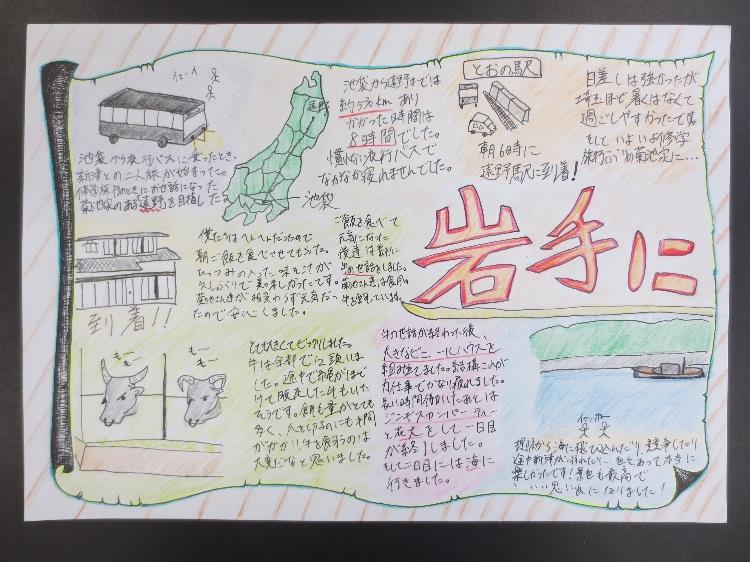 岩手に
イェーイ
池袋から夜行バスに乗ったとき、
二人旅が始まった。
修学旅行のときにお世話になった
菊池家のある遠野を目指したよ
遠野
池袋
池袋から遠野までは
約550kmあり
かかった時間は
8時間でした。
慣れない夜行バスで
なかなか寝れませんでした。
とおの駅
朝6時に
遠野駅に到着!
日差しは強かったが
埼玉ほど暑くはなくて
過ごしやすかったです。
そしていよいよ修学
旅行ぶりの菊池宅に…
到着!!
僕たちはヘトヘトだったので
朝ご飯を食べさせてもらった。
ひっつみの入った味そ汁が
久しぶりで美味しかったです。
菊池さん達が相変わらず元気だっ
たので安心しました。
ご飯を食べて
元気になった
後達は牛の
お世話をしました。
牛を育てています。
も〜
も〜
も〜
とても大きくてビックリしました。
牛は全部で
した。途中で
けて脱走した牛もいた
そうです。餌も量がとても
多く、大きな
がかかり牛を育てるのは
大変だなと思いました。
牛の世話が終わった後、
大きなビニールハウスを
組み立てました。結構これが
力仕事でかなり疲れました。
長い時間働いたあとは
ジンギスカンバーベキュー
と花火をして一日目
が終了しました。
そして二日目には海に
行きました。
イヤッホー
堤防から海に飛び込んだり、競争したり
途中
楽しかったです!景色も最高で
いい思い出になりました!